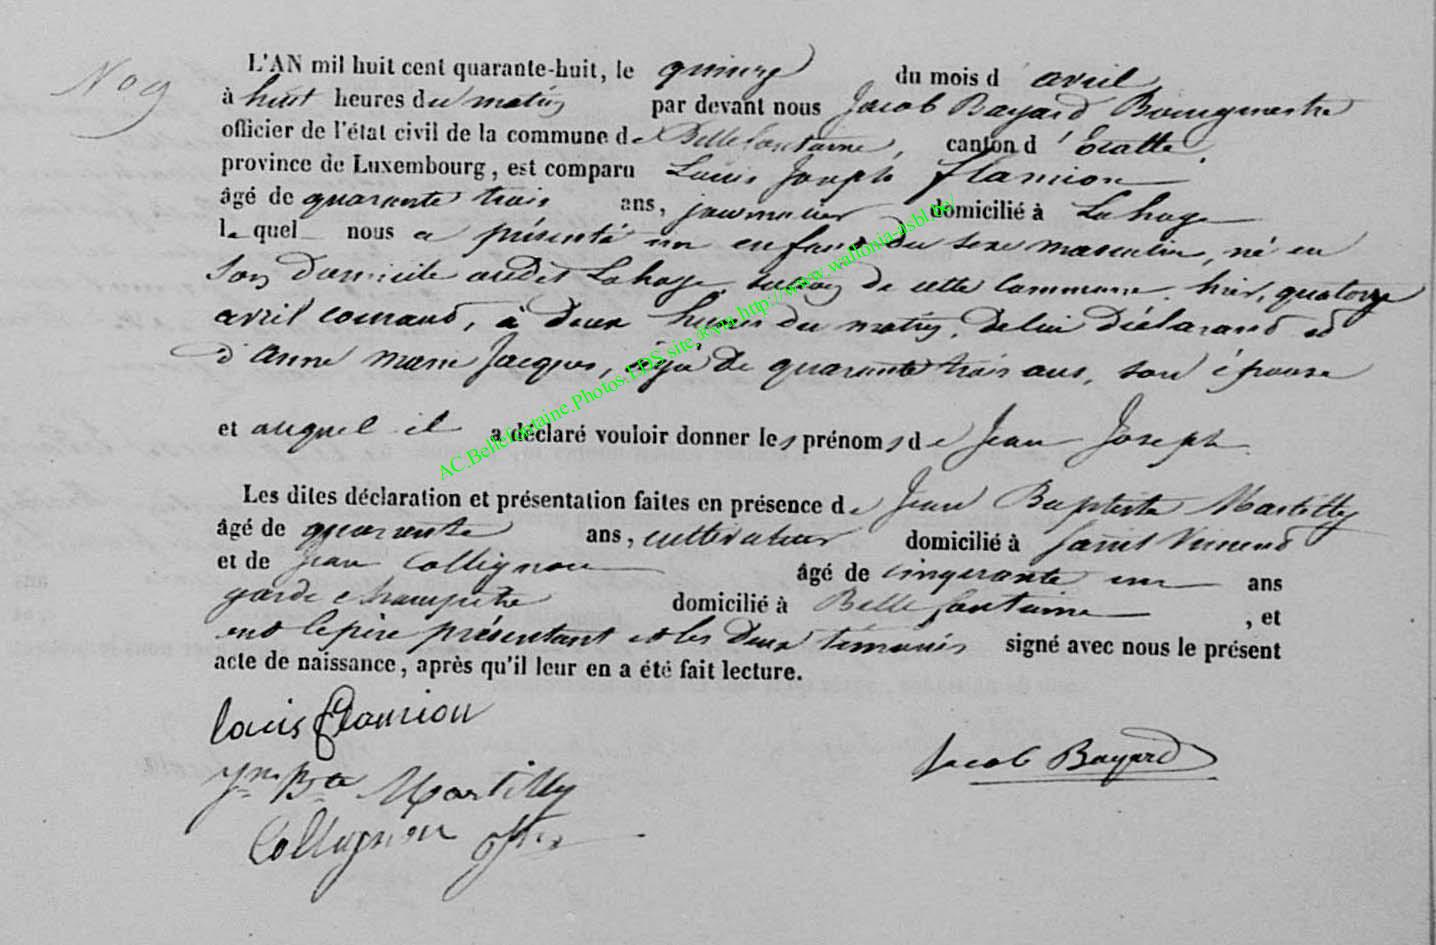 N° 9
L'AN mil huit cent quarante-huit, le quinze du mois d'avril
à huit heures du matin par devant nous Jacob Bayard Bourgmestre
officier de l'état civil de la commune de Bellefontaine, canton d'Etalle,
province de Luxembourg, est comparu Louis Joseph Flamion
âgé de quarante trois ans, journalier domicilié à Lahage
lequel nous a présenté un enfant du sexe masculin, né en
son domicile audit Lahage, de cette Commune, hier, quatorze
avril courant, à deux heures du matin, de lui déclarant et
d'Anne Marie Jacques, âgée de quarante trois ans, son épouse
et auquel il a déclaré vouloir donner les prénoms de Jean Joseph
Les dites déclaration et présentation faites en présence de Jean Baptiste Martilly
âgé de quarante ans, cultivateur domicilié à Saint Vincent
et de Jean Collignon âgé de cinquante un ans
garde champêtre domicilié à Bellefontaine, et
ont le père présentant et les deux témoins signé avec nous le présent
acte de naissance, après qu'il leur en a été fait lecture.
Louis Flamion
Jacob Bayard
Jn Bte Martilly
Collignon
AC.Bellefontaine.Photos.LDS site.&via.http://www.wallonia-asbl.be/